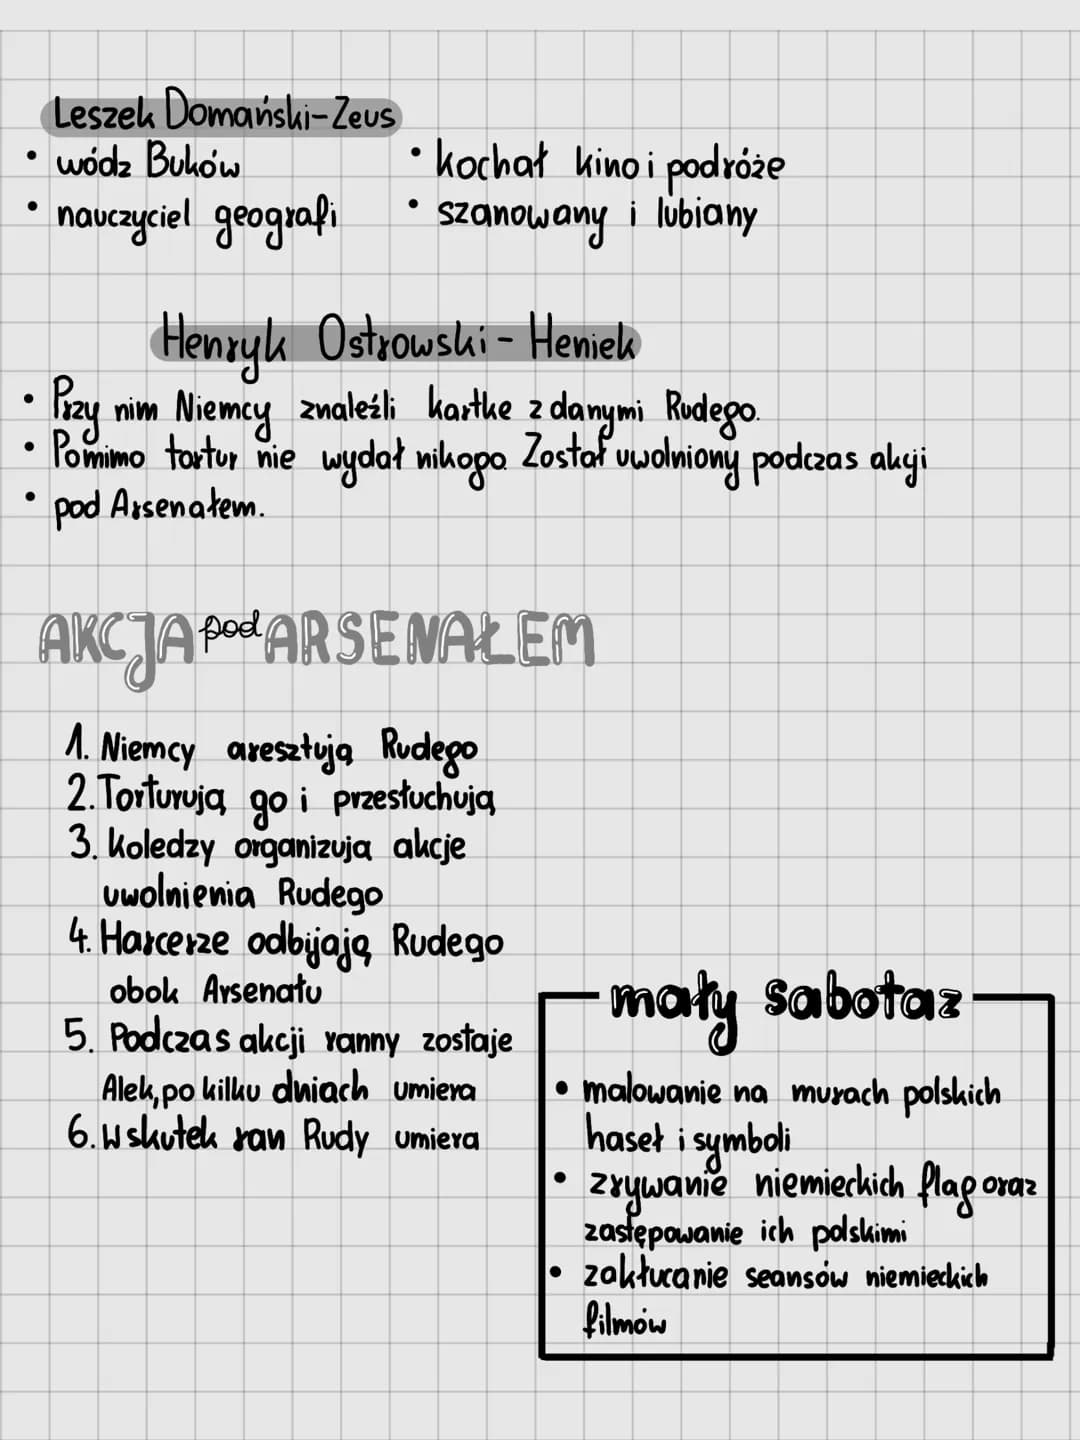 Leszek Domański-Zeus
• wódz Buków
• nauczyciel geografi
• kochał kino i podróże
• szanowany i lubiany
Henryk Ostrowski - Heniek
• Przy nim Niemcy znaleźli kartke z danymi Rudego.
• Pomimo tortur nie wydał nikogo. Został uwolniony podczas akcji
• pod Arsenałem.
AKCJA pod ARSENAŁEM
1. Niemcy aresztują Rudego
2. Torturują go i przesłuchują
3. Koledzy organizują akcje
uwolnienia Rudego
4. Harcerze odbijają Rudego
obok Arsenału
5. Podczas akcji ranny zostaje
Alek, po kilku dniach umiera
6. Wskutek ran Rudy umiera
mały sabotaz
• malowanie na murach polskich
haseł i symboli
• zrywanie niemieckich flag oraz
zastępowanie ich polskimi
• zakłucanie seansów niemieckich
filmów